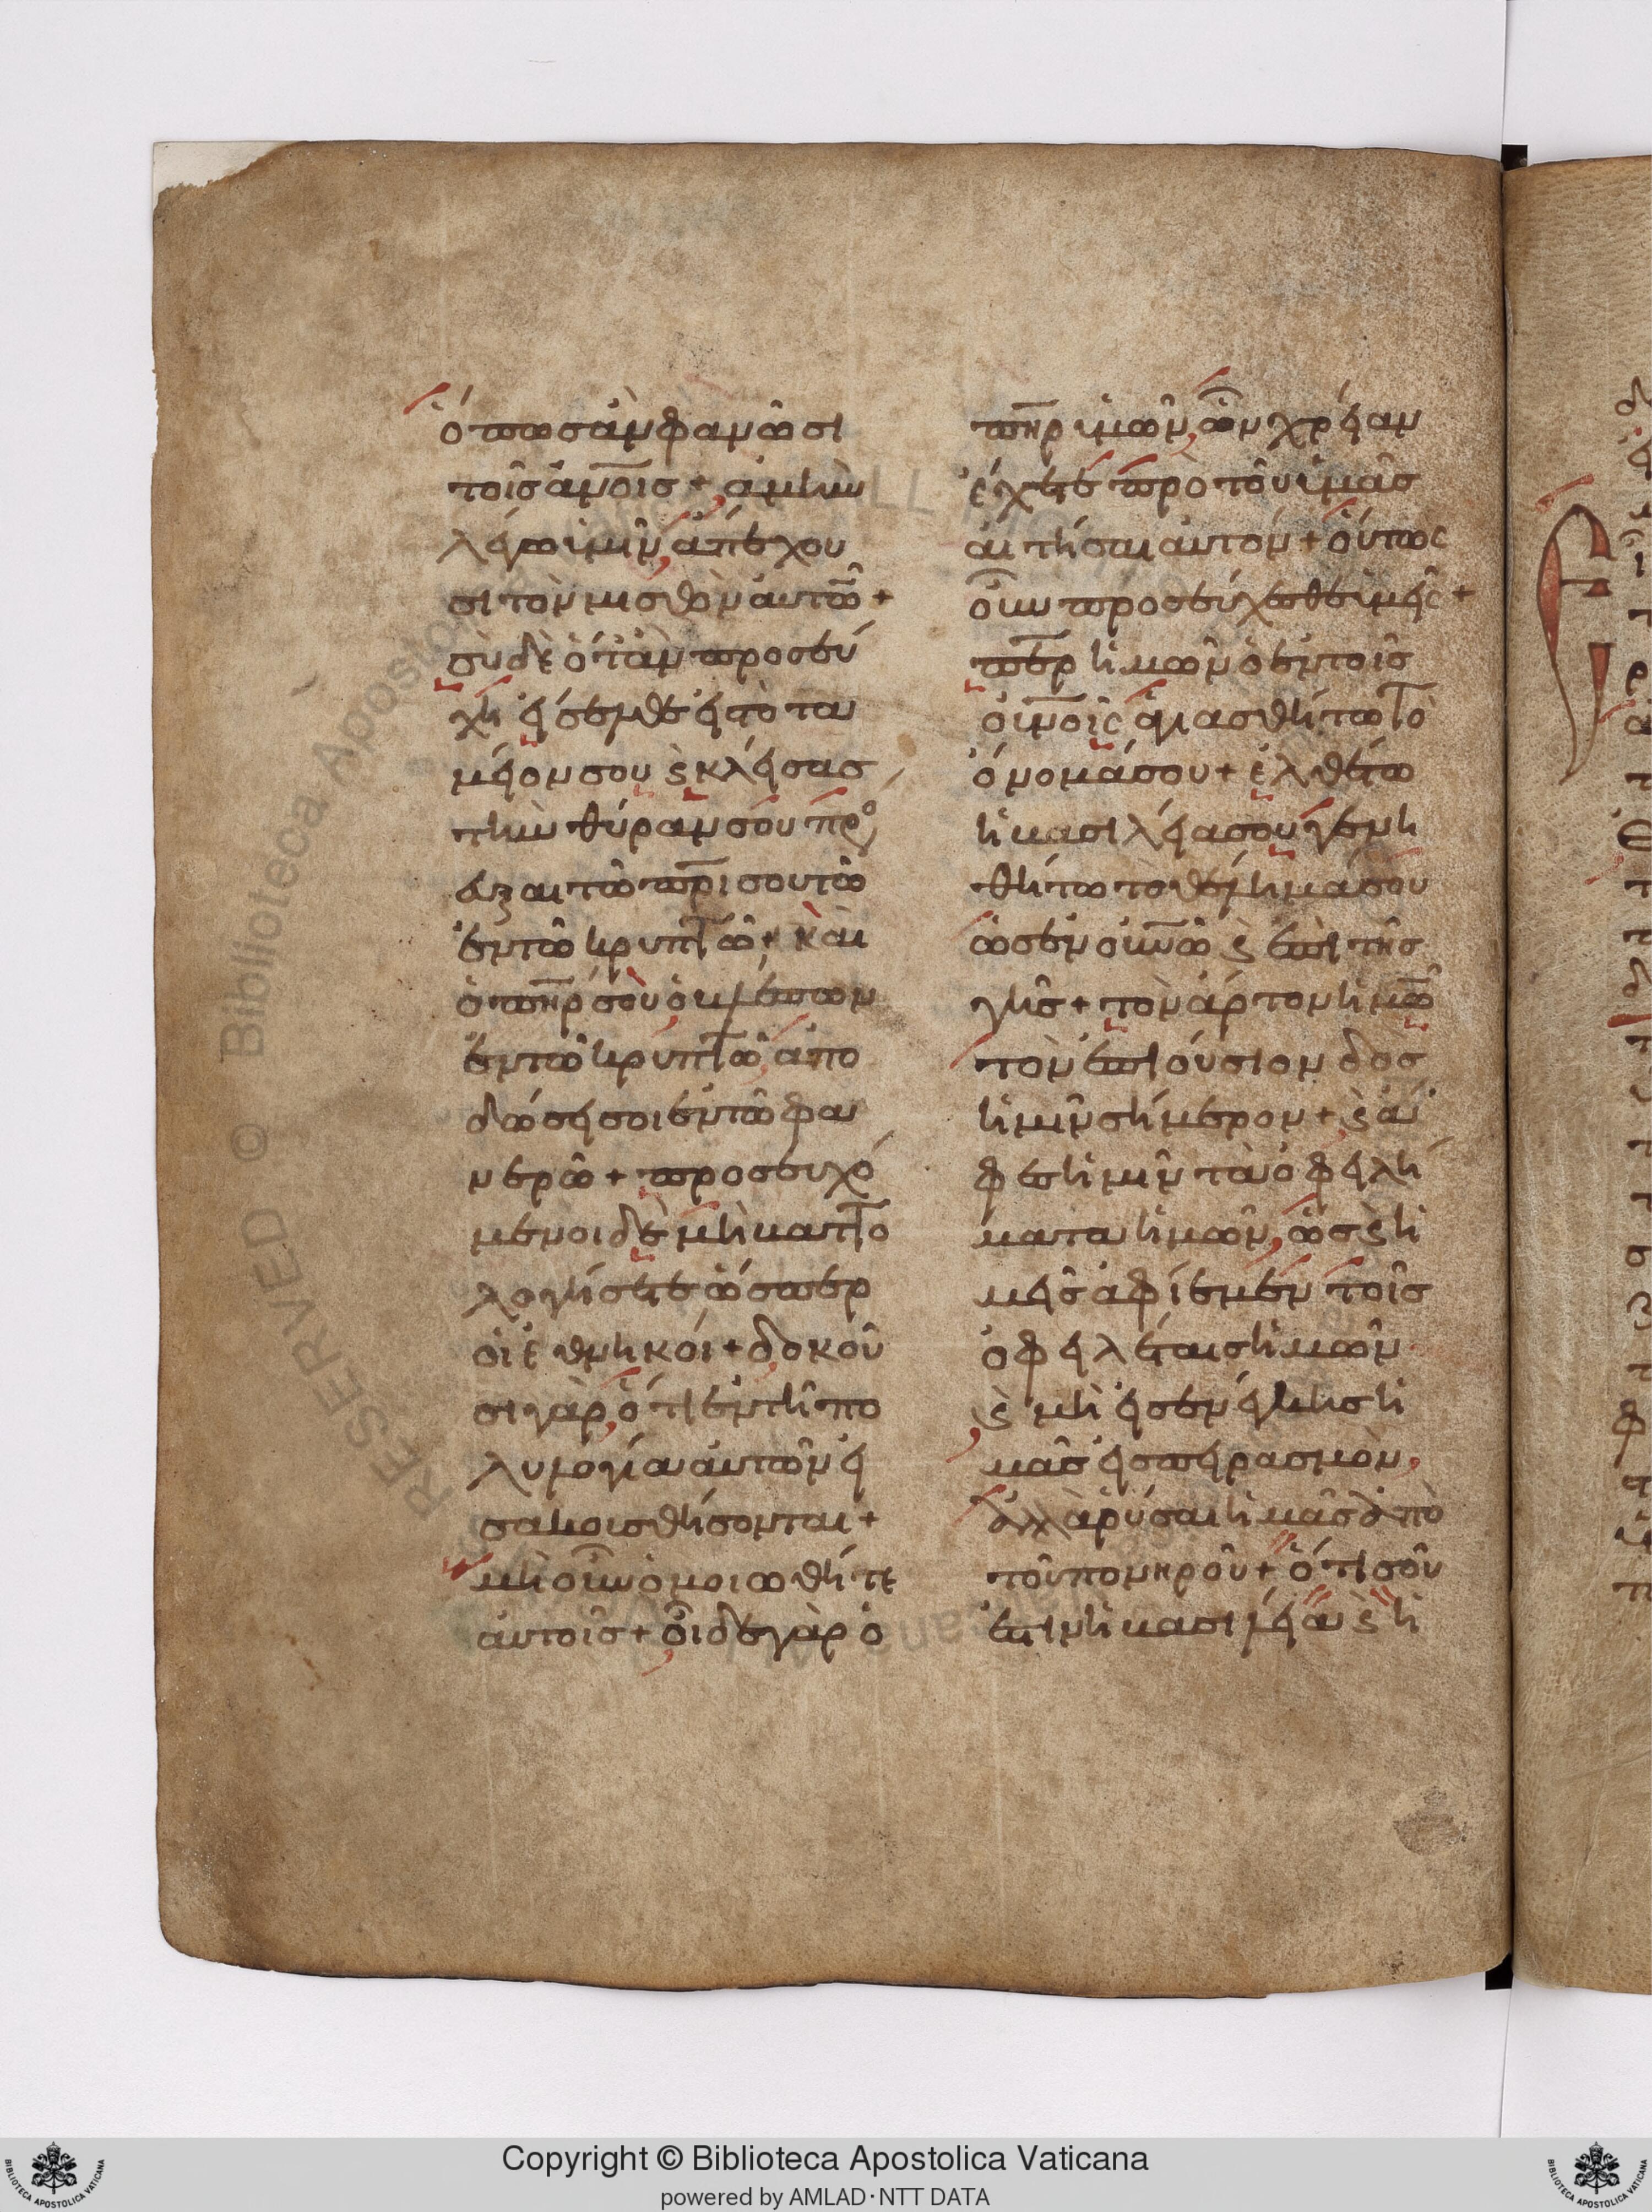 ὅπωσἀνφανῶσι
τοῖσἀν̅οισ + ἀμὴν
λέγωϊμῖν, ἀπέχου
σι τὸν μισθὸν ἀυτῶ̅ +
σὺ δὲ ὅταν προσεύ
χη εἴσελθε εἰς τὸ τα
μεῖον σου ϛ κλείσας
τὴν θύραν σου πρό
σευξαι τῶ πρ̅ι σου τῶ
ἐν τῶ κρυπτῶ + καὶ
ὁ πη̅ρ σου ὁ βλέπων
ἐν τῶ κρυπτῶ, ἀπο
δώσει σοι ἐν τῶ φα
νερῶ + προσευχό
μενοι δὲ μὴ βαττο
λογήσειτε ὥσπερ
οἱ ἐθνηκοί + δοκοῦ
σι γὰρ, ὅτι ἐν τῆ πο
λυλογία αὐτῶν εἰ
σακουσθήσονται +
μὴ οὖν ὁμοιωθῆτε
αὐτοῖσ + οἶδε γὰρ ὁ
πη̅ρ ἱμῶν, ὧν χρείαν
ἔχετε πρὸ τοῦ ἱμᾶσ
αἰτῆσαι αὐτόν + οὕτως
οὖν προσεύχεσθε ἱμεῖς +
πε̅ρ ἡμῶν ὁ ἐν τοῖσ
οὐν̅οῖς ἁγιασθήτω τὸ
ὄνομά σου + ἐλθέτω
ἡ βασιλεία σου, γενη
θήτω τὸ θέλημά σου
ὡσ ἐν οὐν̅ῶ ϛ ἐπὶ τῆσ
γῆσ + τὸν ἄρτον ἡμῶ̅
τὸν ἐπιούσιον δὸσ
ἡμῖν σήμερον + ϛ ἄ
φεσ ἡμῖν τὰ ὀφειλή
ματα ἡμῶν, ὡσ ϛ ἡ
μεῖσ ἀφίεμεν τοῖσ
ὀφειλέταισ ἡμῶν
ϛ μὴ εἰσενείγκησ ἡ
μᾶσ εἰσ πειρασμὸν,
ἀλλὰ ῥύσαι ἡμᾶσ ἀπὸ
τοῦ πονηροῦ + ὅτι σοῦ
ἐστιν ἡ βασιλεία ϛ ἡ
Copyright © Biblioteca Apostolica Vaticana
powered by AMLAD・NTT DATA